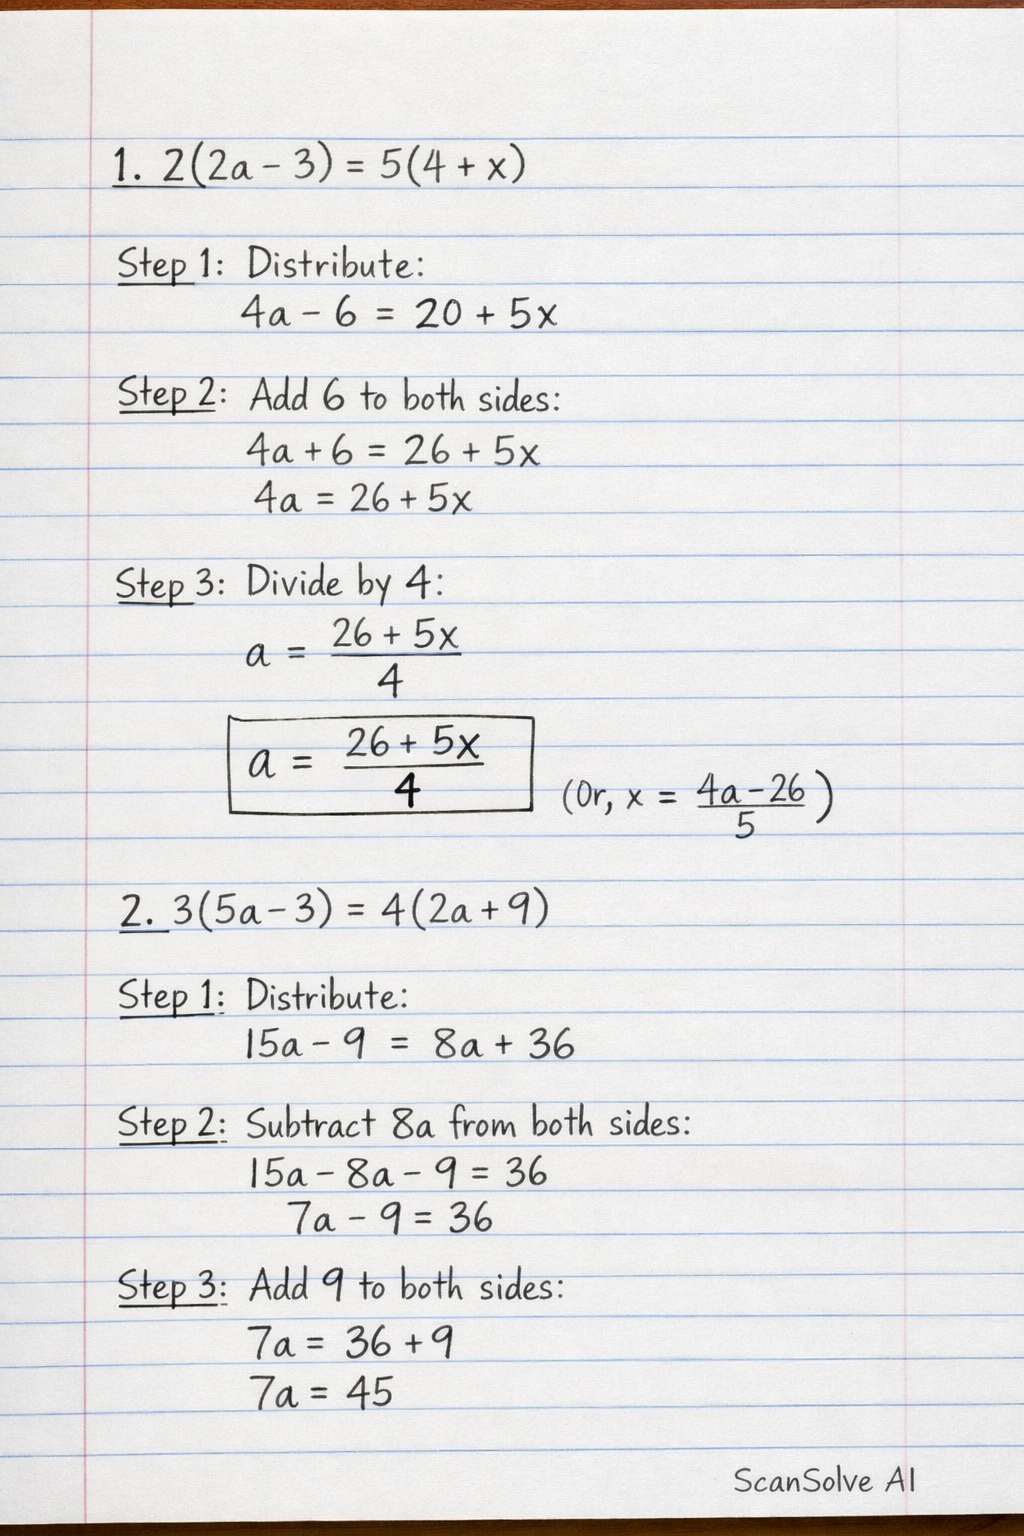 1. 2(2a - 3) = 5(4 + x)
Step 1: Distribute:
4a - 6 = 20 + 5x
Step 2: Add 6 to both sides:
4a + 6 = 26 + 5x
4a = 26 + 5x
Step 3: Divide by 4:
a = (26 + 5x)/4
a = (26 + 5x)/4
(Or, x = (4a - 26)/5)
2. 3(5a - 3) = 4(2a + 9)
Step 1: Distribute:
15a - 9 = 8a + 36
Step 2: Subtract 8a from both sides:
15a - 8a - 9 = 36
7a - 9 = 36
Step 3: Add 9 to both sides:
7a = 36 + 9
7a = 45
ScanSolve AI